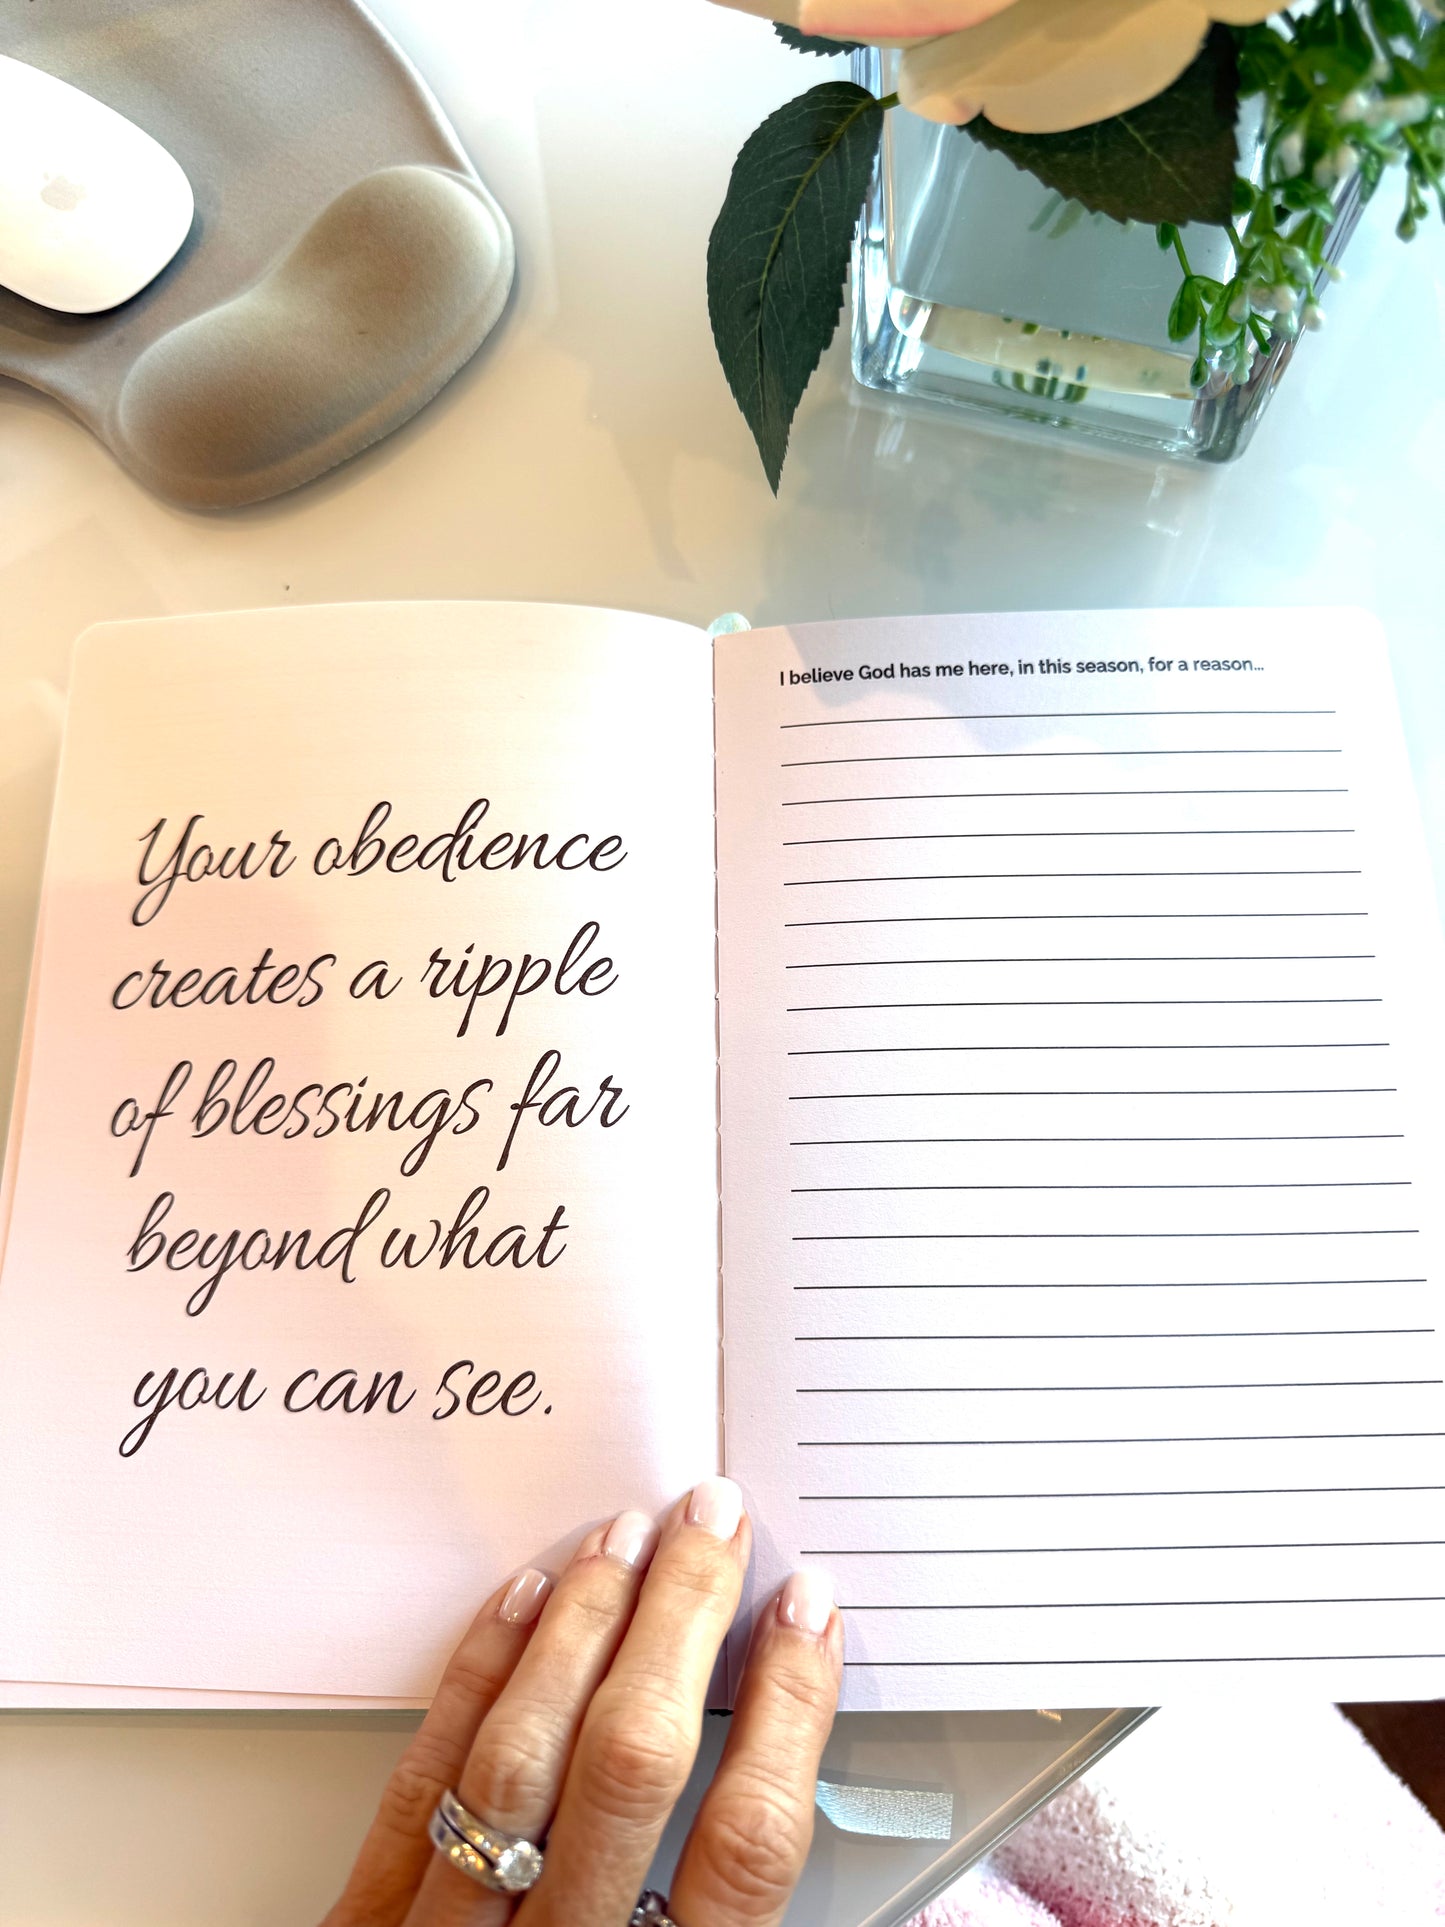 Your obedience
creates a ripple
of blessings far
beyond what
you can see.
I believe God has me here, in this season, for a reason...